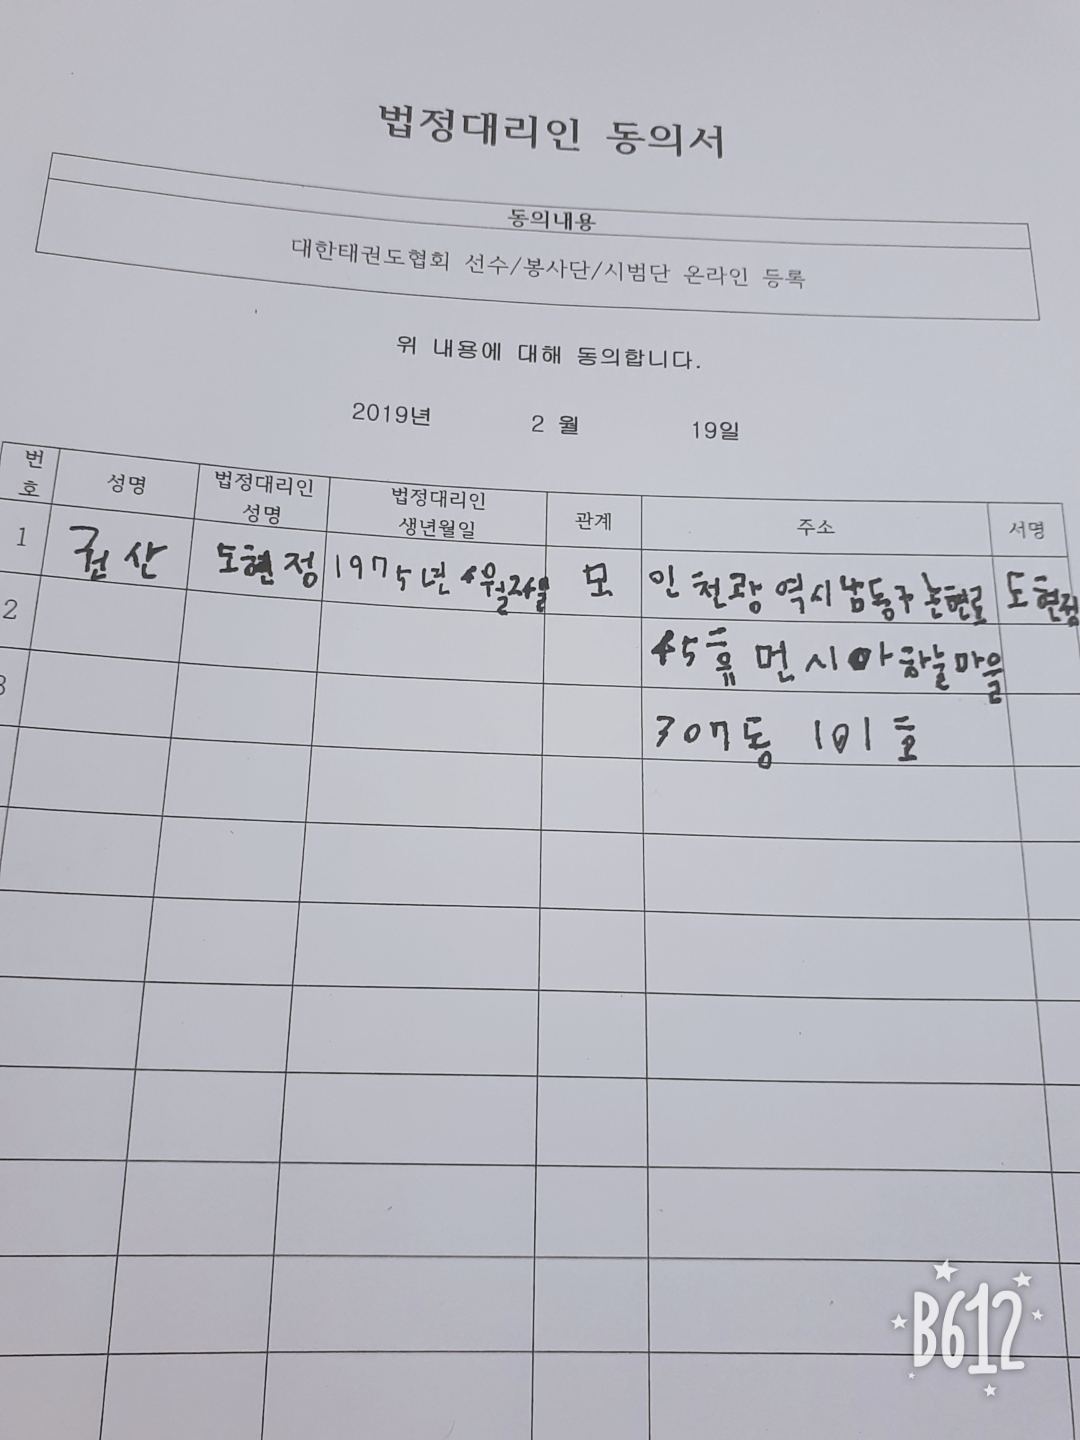 법정대리인 동의서
동의내용
대한태권도협회 선수/봉사단/시범단 온라인 등록
위 내용에 대해 동의합니다.
2019년 2 월 19일
번호 성명 법정대리인 성명 법정대리인 생년월일 관계 주소 서명
1 권산 도현정 1975년 모 인천광역시남동구논현로 도현정
2 45휴먼시아하늘마을
3 307동 101호
B612